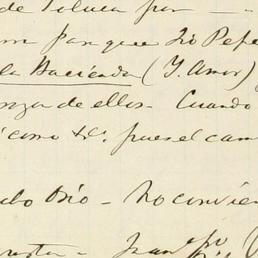 de Toluca por — -
para que Tio Pepe
la Hacienda (Y. Amor)
de ellos - Cuando
como &c. pues el cam
Osio - No convien